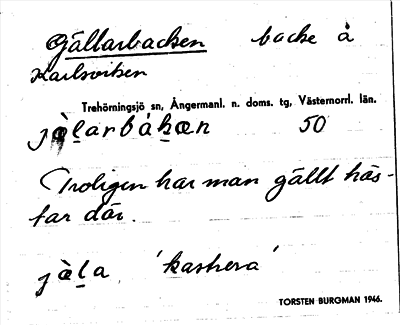 Gällarbacken backe å
Karlsviken
Trehörningsjö sn, Ångermanl. n. doms. tg, Västernorrl. län.
jæ̀l̠arbák̠æn 50
Troligen har man gällt häs-
tar där.
jæ̀l̠a 'kastrera'
TORSTEN BURGMAN 1946.